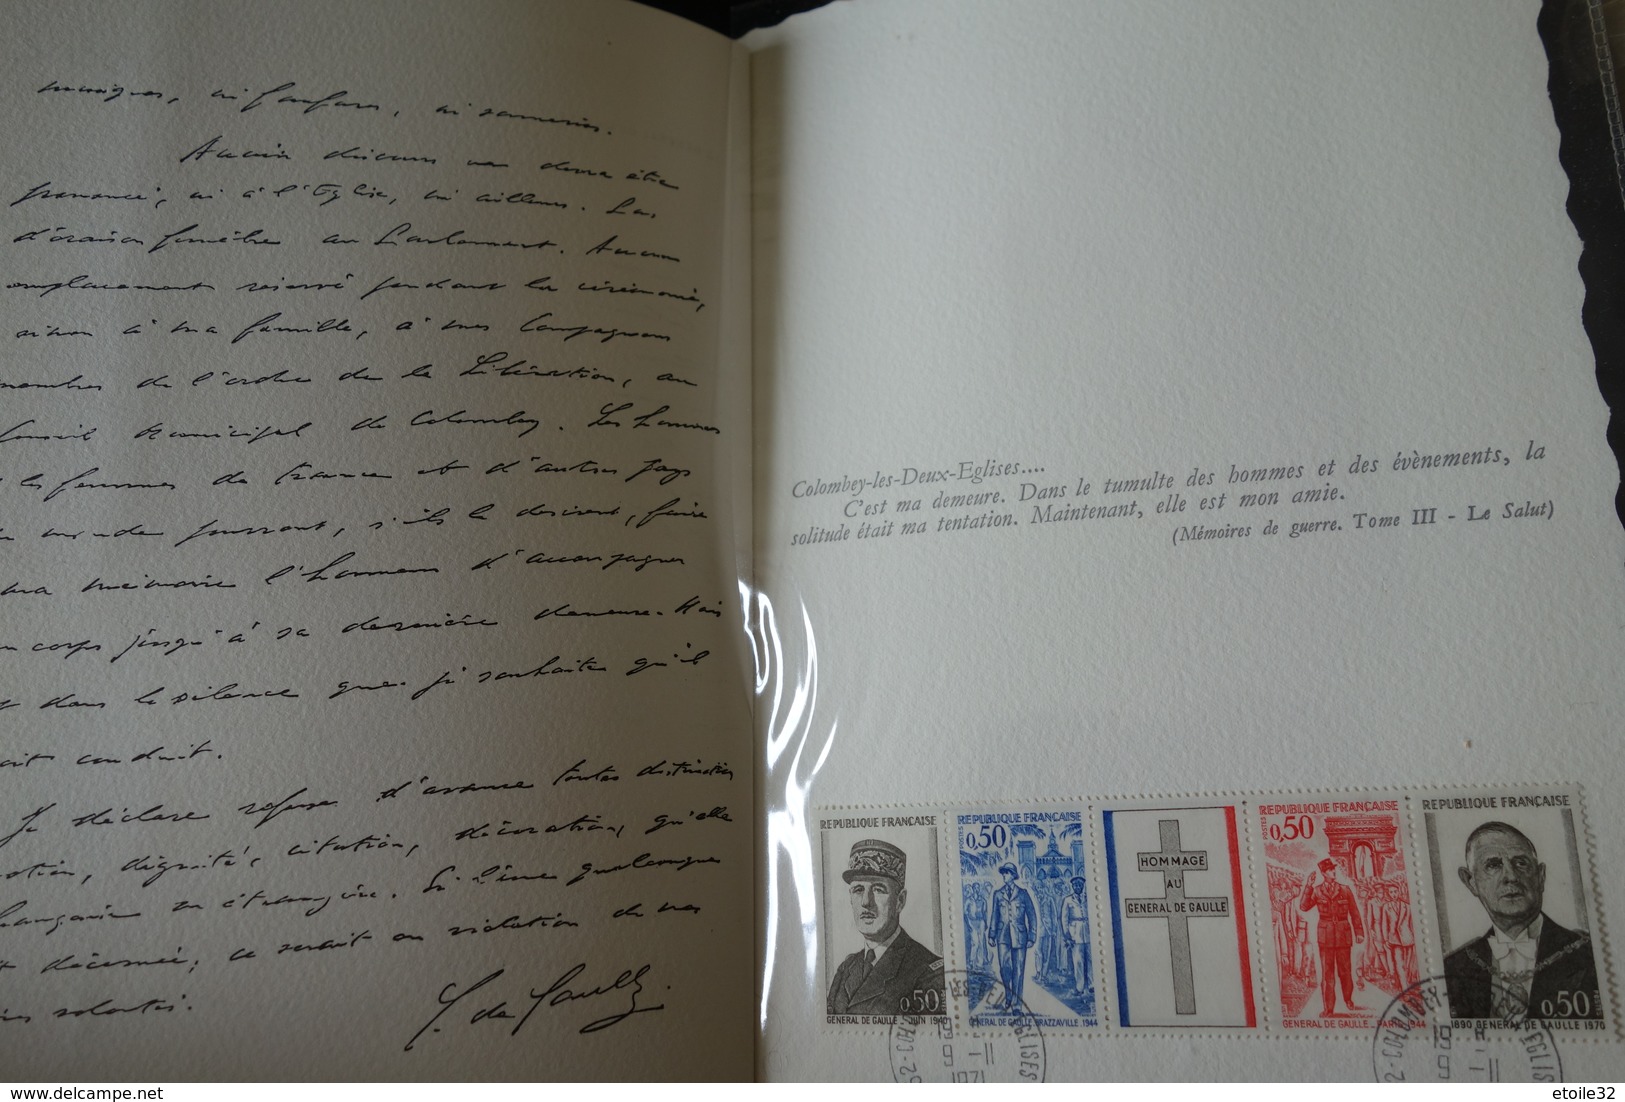 musiques, ni fanfares, ni sonneries.
Aucun discours ne devra être
prononcé, ni à l'Eglise, ni ailleurs. Pas
d'oraison funèbre au Parlement. Aucun
emplacement réservé pendant la cérémonie,
sinon à ma famille, à mes Compagnons
membres de l'ordre de la Libération, au
Conseil municipal de Colombey. Les hommes
et les femmes de France et d'autres pays
du monde pourront, s'ils le désirent, faire
à ma mémoire l'honneur d'accompagner
mon corps jusqu'à sa dernière demeure. Mais
c'est dans le silence que je souhaite qu'il
soit conduit.
Je déclare refuser d'avance toute distinction
promotion, dignité, citation, décoration, qu'elle
soit française ou étrangère. Si l'une quelconque
m'était décernée, ce serait en violation de mes
dernières volontés.
C. de Gaulle.
Colombey-les-Deux-Eglises....
C'est ma demeure. Dans le tumulte des hommes et des évènements, la
solitude était ma tentation. Maintenant, elle est mon amie.
(Mémoires de guerre. Tome III - Le Salut)
REPUBLIQUE FRANÇAISE
0,50
GENERAL DE GAULLE - JUIN 1940
REPUBLIQUE FRANÇAISE
POSTES
0,50
GENERAL DE GAULLE BRAZZAVILLE 1944
HOMMAGE
AU
GENERAL DE GAULLE
REPUBLIQUE FRANÇAISE
POSTES
0,50
GENERAL DE GAULLE - PARIS 1944
REPUBLIQUE FRANÇAISE
0,50
1890 GENERAL DE GAULLE 1970
etoile32